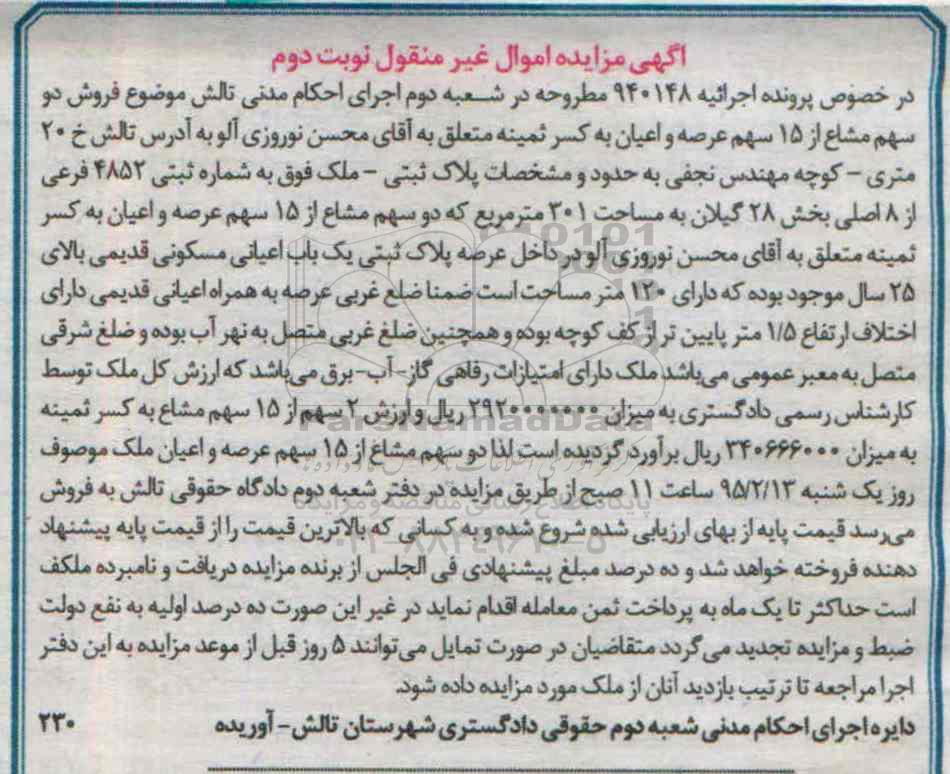 اگهی مزایده اموال غیر منقول نوبت دوم
در خصوص پرونده اجرائیه ۹۴۰۱۴۸ مطروحه در شعبه دوم اجرای احکام مدنی تالش موضوع فروش دو
سهم مشاع از ۱۵ سهم عرصه و اعیان به کسر ثمینه متعلق به آقای محسن نوروزی آلو به آدرس تالش خ ۲۰
متری - کوچه مهندس نجفی به حدود و مشخصات پلاک ثبتی - ملک فوق به شماره ثبتی ۴۸۵۲ فرعی
از ۸ اصلی بخش ۲۸ گیلان به مساحت ۳۰۱ مترمربع که دو سهم مشاع از ۱۵ سهم عرصه و اعیان به کسر
ثمینه متعلق به آقای محسن نوروزی آلو در داخل عرصه پلاک ثبتی یک باب اعیانی مسکونی قدیمی بالای
۲۵ سال موجود بوده که دارای ۱۲۰ متر مساحت است ضمنا ضلع غربی عرصه به همراه اعیانی قدیمی دارای
اختلاف ارتفاع ۱/۵ متر پایین تر از کف کوچه بوده و همچنین ضلع غربی متصل به نهر آب بوده و ضلع شرقی
متصل به معبر عمومی می‌باشد ملک دارای امتیازات رفاهی گاز-آب-برق می‌باشد که ارزش کل ملک توسط
کارشناس رسمی دادگستری به میزان ۲۹۲۰۰۰۰۰۰۰ ریال و ارزش ۲ سهم از ۱۵ سهم مشاع به کسر ثمینه
به میزان ۳۴۰۶۶۶۰۰۰ ریال برآورد گردیده است لذا دو سهم مشاع از ۱۵ سهم عرصه و اعیان ملک موصوف
روز یک شنبه ۹۵/۲/۱۳ ساعت ۱۱ صبح از طریق مزایده در دفتر شعبه دوم دادگاه حقوقی تالش به فروش
می‌رسد قیمت پایه از بهای ارزیابی شده شروع شده و به کسانی که بالاترین قیمت را از قیمت پایه پیشنهاد
دهنده فروخته خواهد شد و ده درصد مبلغ پیشنهادی فی الجلس از برنده مزایده دریافت و نامبرده ملکف
است حداکثر تا یک ماه به پرداخت ثمن معامله اقدام نماید در غیر این صورت ده درصد اولیه به نفع دولت
ضبط و مزایده تجدید می‌گردد متقاضیان در صورت تمایل می‌توانند ۵ روز قبل از موعد مزایده به این دفتر
اجرا مراجعه تا ترتیب بازدید آنان از ملک مورد مزایده داده شود.
دایره اجرای احکام مدنی شعبه دوم حقوقی دادگستری شهرستان تالش- آوریده ۲۳۰
ParsNamadData
پایگاه اطلاع رسانی مناقصه و مزایده